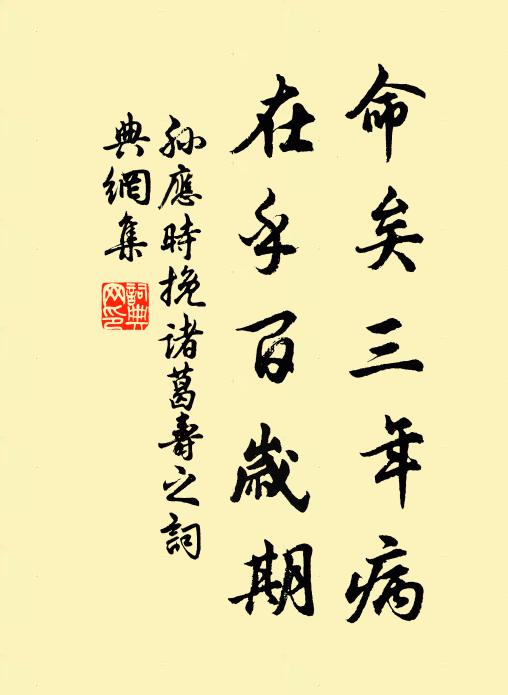 命矣三年病
在乎百歲期
孙應時挽诸葛壽之詞
典網集
詞典網印